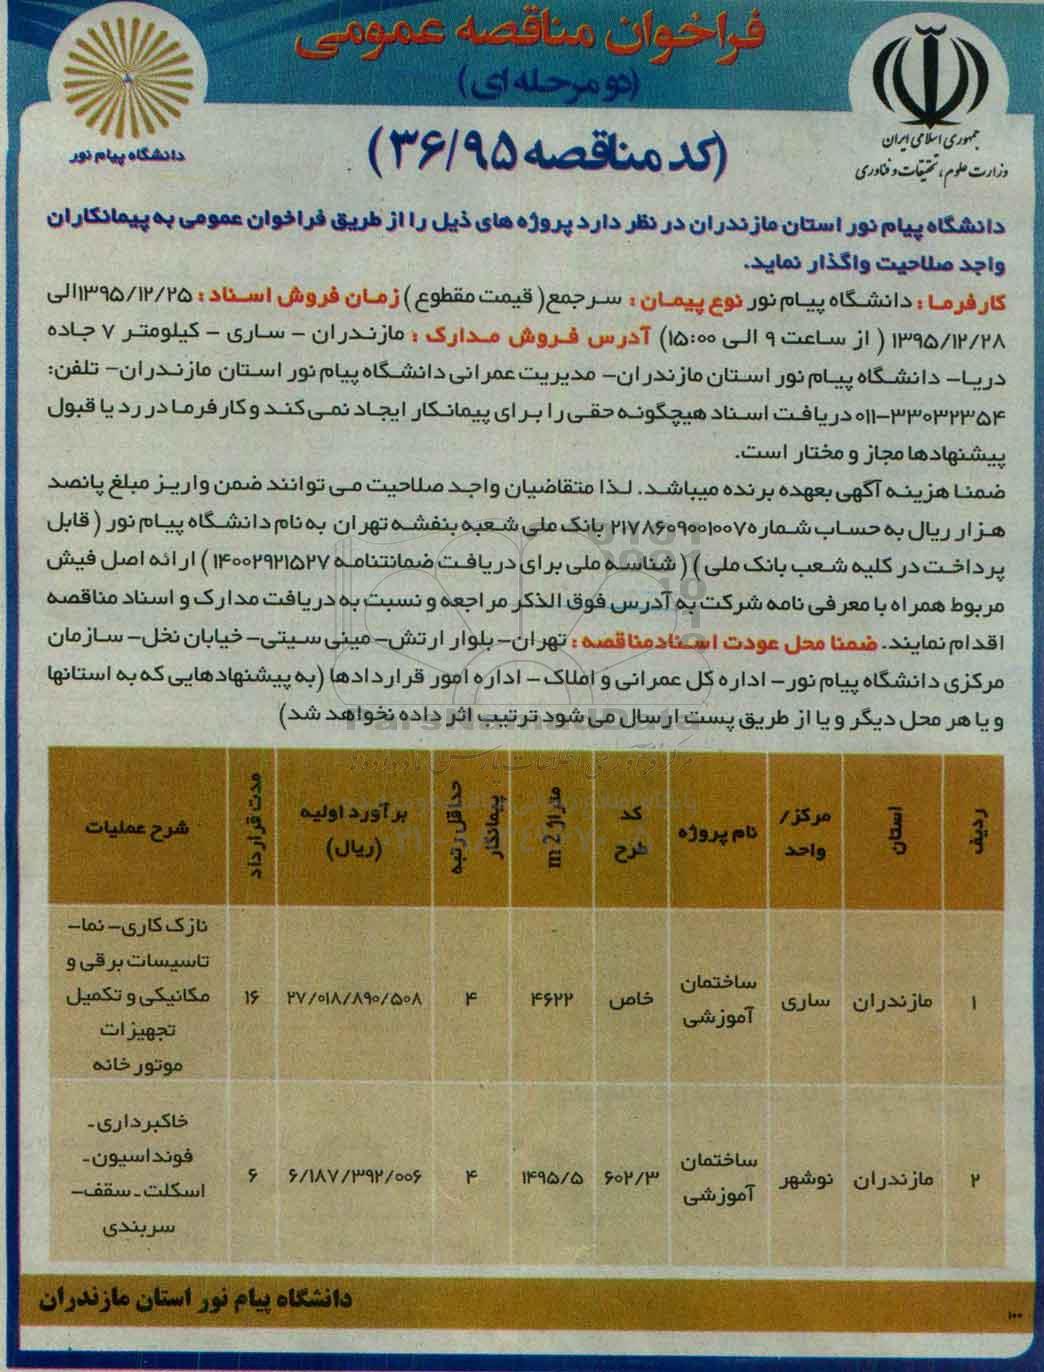 فراخوان مناقصه عمومی
(دو مرحله ای)
(کد مناقصه ۳۶/۹۵)
جمهوری اسلامی ایران
وزارت علوم، تحقیقات و فناوری
دانشگاه پیام نور
دانشگاه پیام نور استان مازندران در نظر دارد پروژه های ذیل را از طریق فراخوان عمومی به پیمانکاران
واجد صلاحیت واگذار نماید.
کارفرما : دانشگاه پیام نور نوع پیمان : سرجمع( قیمت مقطوع ) زمان فروش اسناد : ۱۳۹۵/۱۲/۲۵الی
۱۳۹۵/۱۲/۲۸ ( از ساعت ۹ الی ۱۵:۰۰) آدرس فروش مدارک : مازندران – ساری – کیلومتر ۷ جاده
دریا– دانشگاه پیام نور استان مازندران– مدیریت عمرانی دانشگاه پیام نور استان مازندران– تلفن:
۰۱۱-۳۳۰۳۲۳۵۴ دریافت اسناد هیچگونه حقی را برای پیمانکار ایجاد نمی کند و کارفرما در رد یا قبول
پیشنهادها مجاز و مختار است.
ضمنا هزینه آگهی بعهده برنده میباشد. لذا متقاضیان واجد صلاحیت می توانند ضمن واریز مبلغ پانصد
هزار ریال به حساب شماره ۲۱۷۸۶۰۹۰۰۱۰۰۷ بانک ملی شعبه بنفشه تهران به نام دانشگاه پیام نور ( قابل
پرداخت در کلیه شعب بانک ملی ) ( شناسه ملی برای دریافت ضمانتنامه ۱۴۰۰۲۹۲۱۵۲۷ ) ارائه اصل فیش
مربوط همراه با معرفی نامه شرکت به آدرس فوق الذکر مراجعه و نسبت به دریافت مدارک و اسناد مناقصه
اقدام نمایند. ضمنا محل عودت اسناد مناقصه : تهران– بلوار ارتش– مینی سیتی– خیابان نخل– سازمان
مرکزی دانشگاه پیام نور– اداره کل عمرانی و املاک – اداره امور قراردادها (به پیشنهادهایی که به استانها
و یا هر محل دیگر و یا از طریق پست ارسال می شود ترتیب اثر داده نخواهد شد)
ParsNamadData
ردیف | استان | مرکز/ واحد | نام پروژه | کد طرح | متراژ m2 | حداقل رتبه پیمانکار | برآورد اولیه (ریال) | مدت قرارداد | شرح عملیات
۱ | مازندران | ساری | ساختمان آموزشی | خاص | ۴۶۲۲ | ۴ | ۲۷/۰۱۸/۸۹۰/۵۰۸ | ۱۶ | نازک کاری– نما– تاسیسات برقی و مکانیکی و تکمیل تجهیزات موتور خانه
۲ | مازندران | نوشهر | ساختمان آموزشی | ۶۰۲/۳ | ۱۴۹۵/۵ | ۴ | ۶/۱۸۷/۳۹۲/۰۰۶ | ۶ | خاکبرداری- فونداسیون- اسکلت- سقف– سربندی
دانشگاه پیام نور استان مازندران
۱۰۰